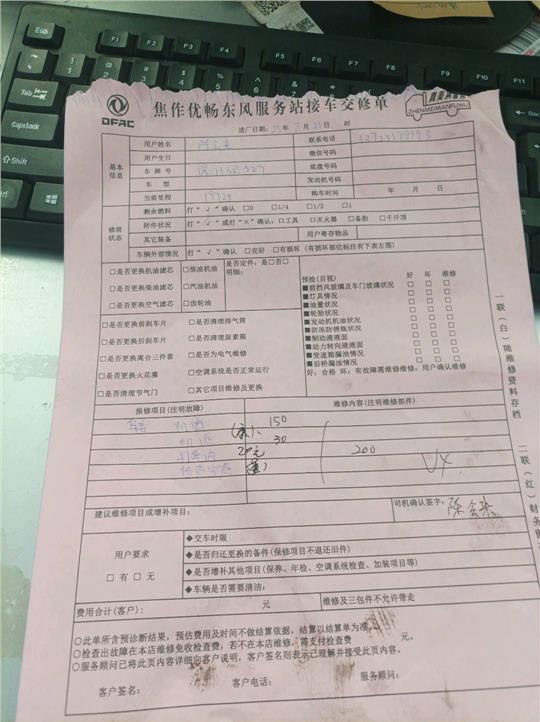 焦作优畅东风服务站接车交修单
DFAC
真美满服务
ZHENMEIMANFUWU
进厂日期: 年 月 21日 时
基本信息
用户姓名 陈会来 联系电话
用户生日 微信号码
车牌号 底盘号码
车型 发动机号码
当前里程 购车时间 年 月 日
修前状态
剩余燃料 打“√”确认 □0 □1/4 □1/2 □1
附件状况 打“√”或打“×”确认:□工具 □灭火器 □备胎 □千斤顶
其它装备 用户寄存物品
车辆外部情况 打“√”确认 □完好 □有损坏(有损坏部位标注有下表左图)
□是否更换机油滤芯 □柴油机油 是否定件:是□否□
□是否更换柴油滤芯 □汽油机油 明细:
□是否更换空气滤芯 □齿轮油
□是否更换前刹车片 □是否清理排气筒
□是否更换后刹车片 □是否清理尿素箱
□是否更换离合三件套 □是否为电气维修
□是否更换火花塞 □空调系统是否正常运行
□是否清理节气门 □其它项目维修及更换
预检(目视) 好 坏 维修
■前挡风玻璃及车门玻璃状况 □ □ □
■灯具情况 □ □ □
■油量状况 □ □ □
■轮胎状况 □ □ □
■发动机机油状况 □ □ □
■防冻防锈瓶状况 □ □ □
■制动液液面 □ □ □
■动力转向液液面 □ □ □
■变速箱漏油情况 □ □ □
■后桥漏油情况 □ □ □
好:合格 坏:有故障需维修维修:用户确认维修
报修项目(注明故障) 维修内容(注明维修部件)
机油 150
机滤 30
20元 200
建议维修项目或增补项目: 司机确认签字: 陈会来
用户要求
□有 □无
◆交车时限
◆是否归还更换的备件(保修项目不退还旧件)
◆是否增补其他项目(保养、年检、空调系统检查、加装项目等)
◆车辆是否需要清洁:
费用合计(客户): 元 维修及三包件不允许带走
○此单所含预诊断结果,预估费用及时间不做结算依据,结算以结算单为准。
○检查出故障在本店维修免收检查费;若不在本店维修,需支付检查费 元。
○服务顾问已将此页内容详细向客户说明,客户签名则表示已理解并接受此页内容。
客户签名: 客户电话: 服务顾问:
一联(白)随维修资料存档
二联(红)财务
Esc
F1
F2
F3
F4
F5
F6
F7
F8
F9
F10
F11
Tab
CapsLock
Shift
Ctrl